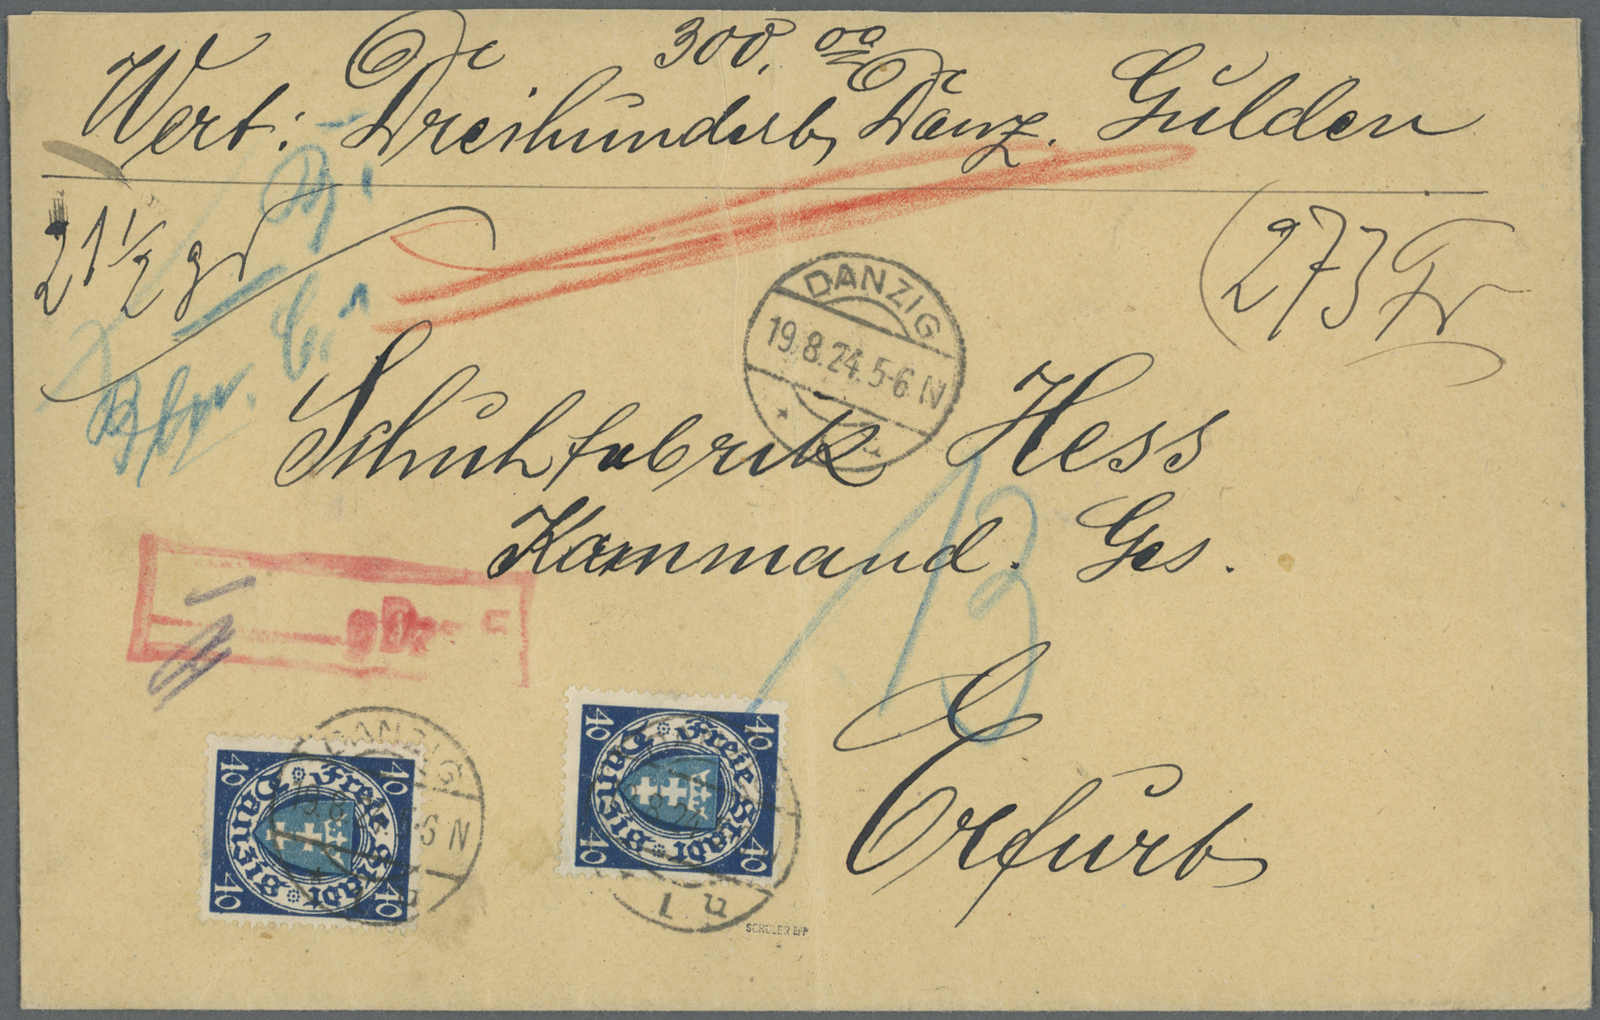 300,00
Wert: Dreihundert Danz. Gulden
21 1/2 gr
(273 Fr
DANZIG
19.8.24.5-6 N
Schuhfabrik Hess
Kommand. Ges.
13
Erfurt
DANZIG
6 N
40 40 40 40
Freie Stadt Danzig
40 40 40 40
Freie Stadt Danzig
SCHÜLER BPP